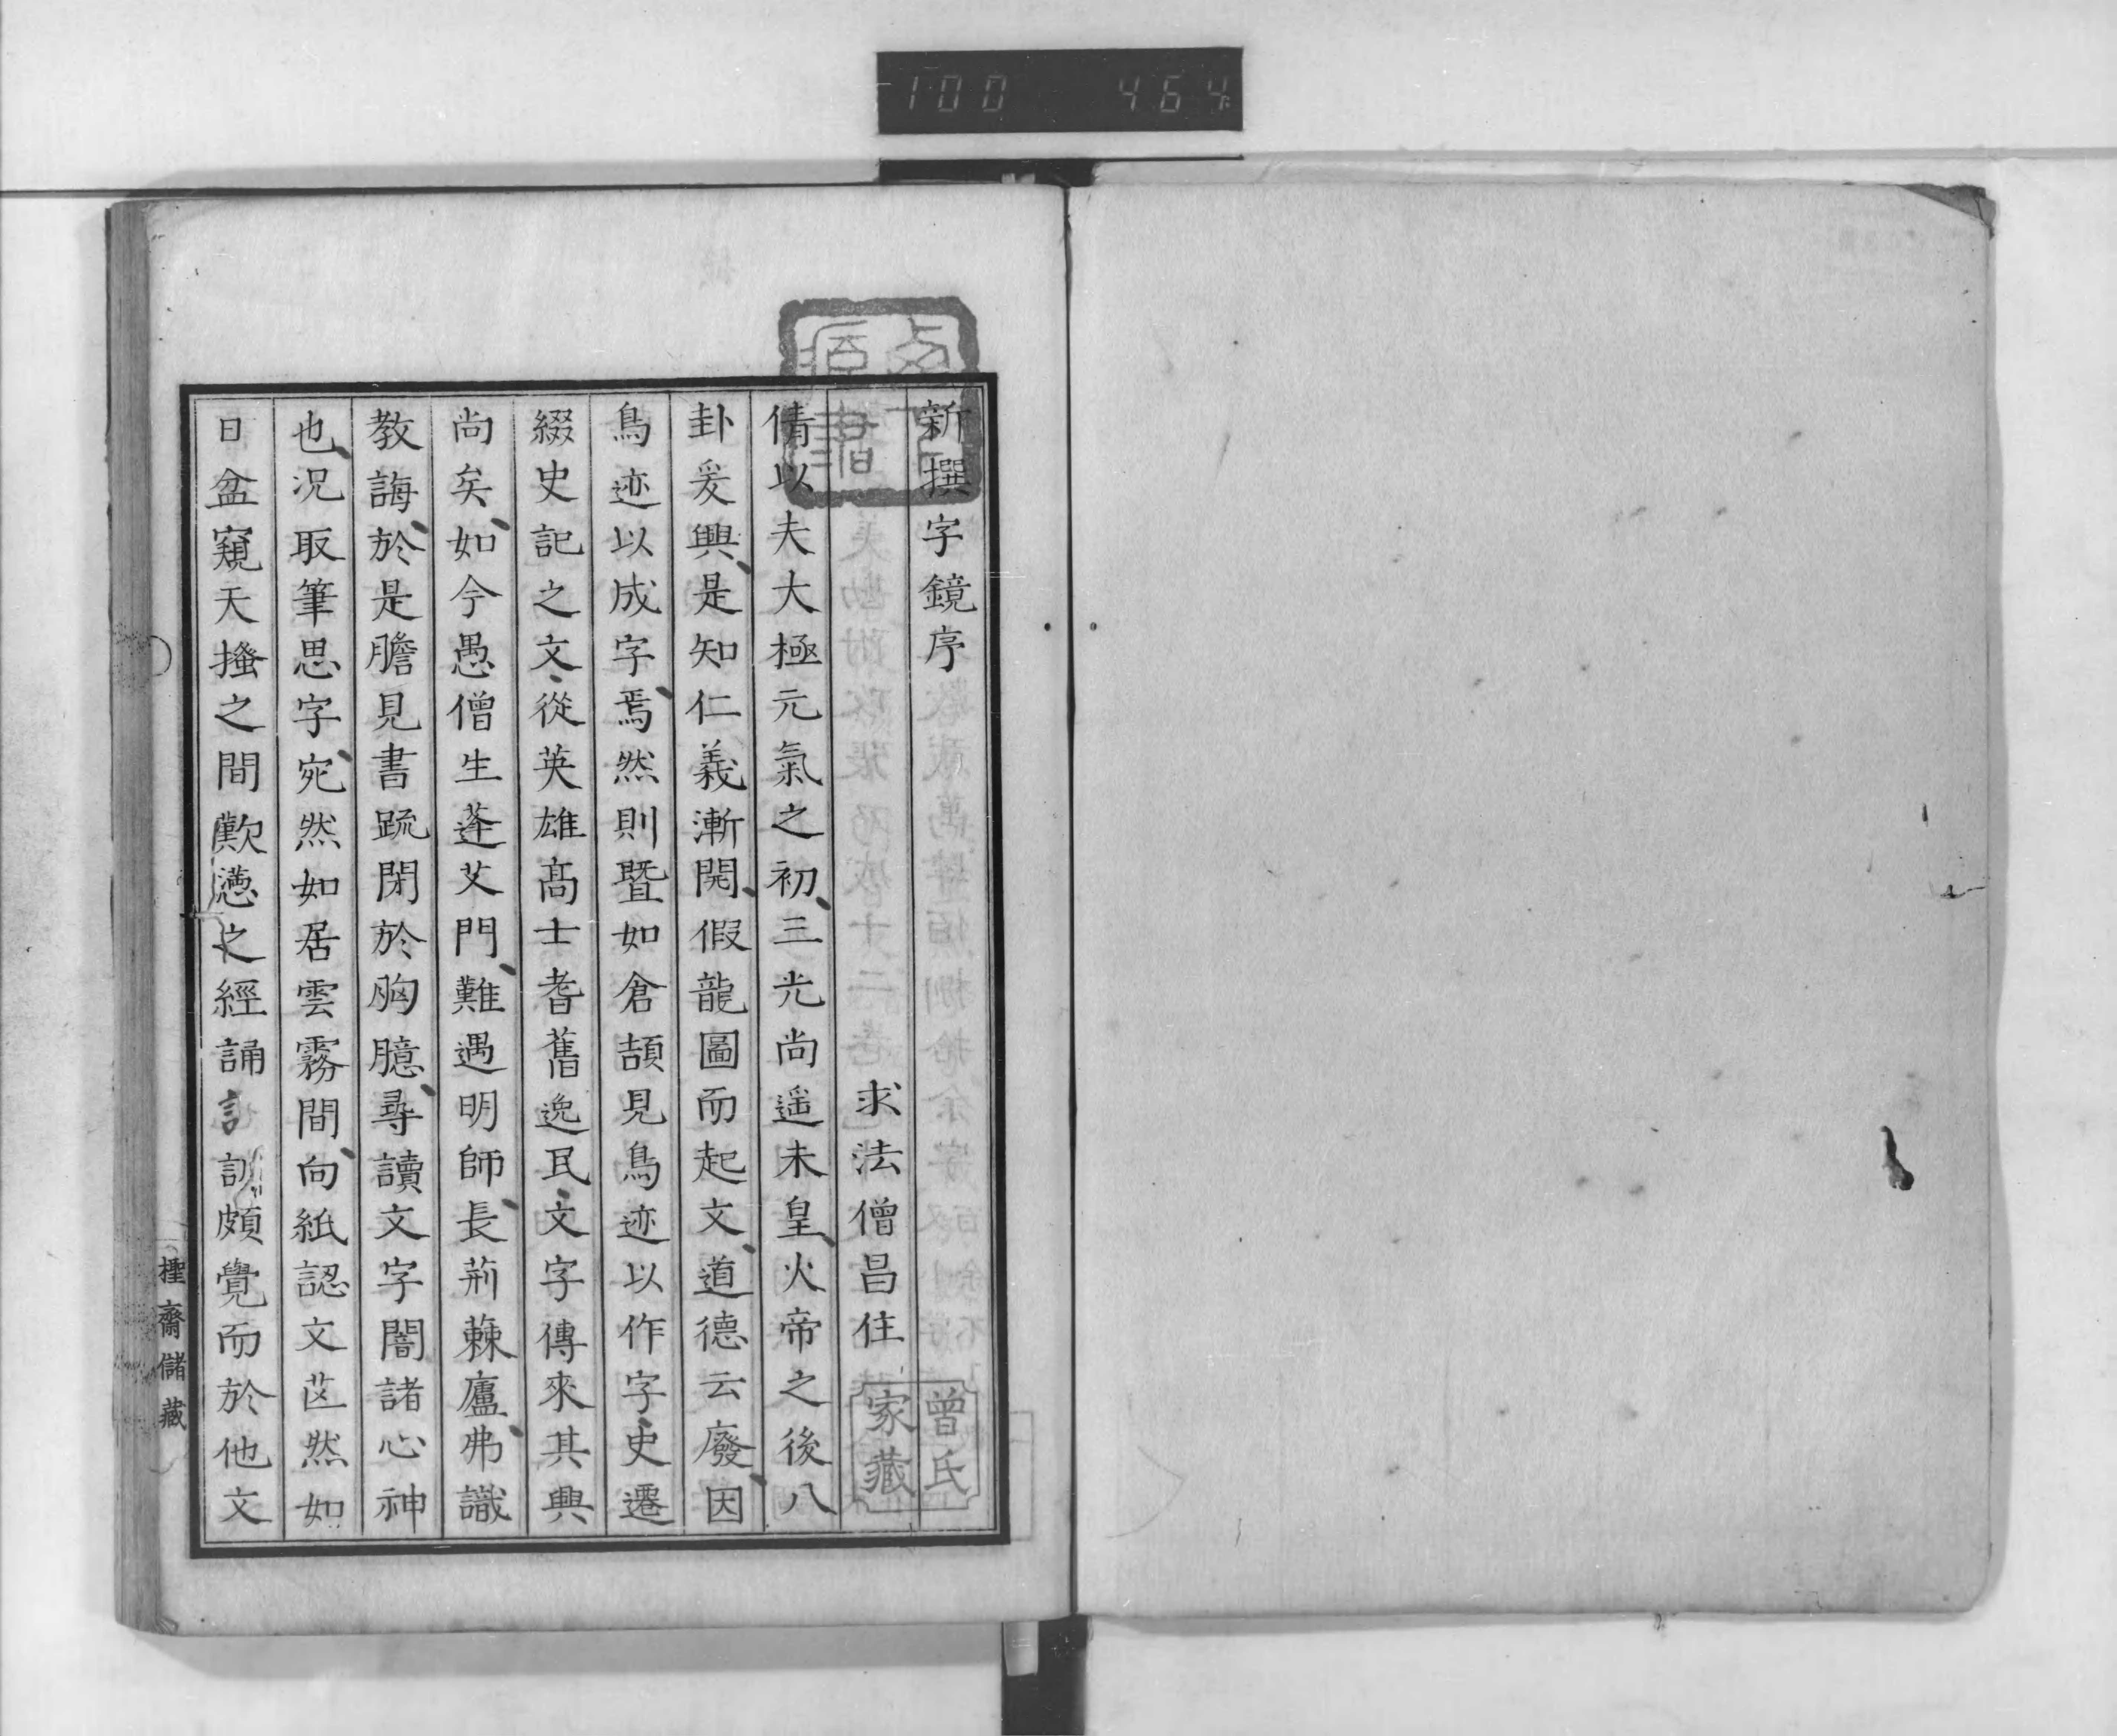 100 464
新撰字鏡序
求法僧昌住
倩以夫大極元氣之初三光尚遥未皇火帝之後八
卦爰興是知仁義漸開假龍圖而起文道德云廢因
鳥迹以成字焉然則暨如倉頡見鳥迹以作字史遷
綴史記之文從英雄髙士耆舊逸民文字傳來其興
尚矣如今愚僧生蓬艾門難遇明師長荊蕀廬弗識
教誨於是膽見書䟽閉於胸臆尋讀文字闇諸心神
也況取筆思字宛然如居雲霧間向紙認文茫然如
日盆窺天搔之間歎懣之經誦言訓頗覺而於他文
曾氏
家藏
齋儲藏